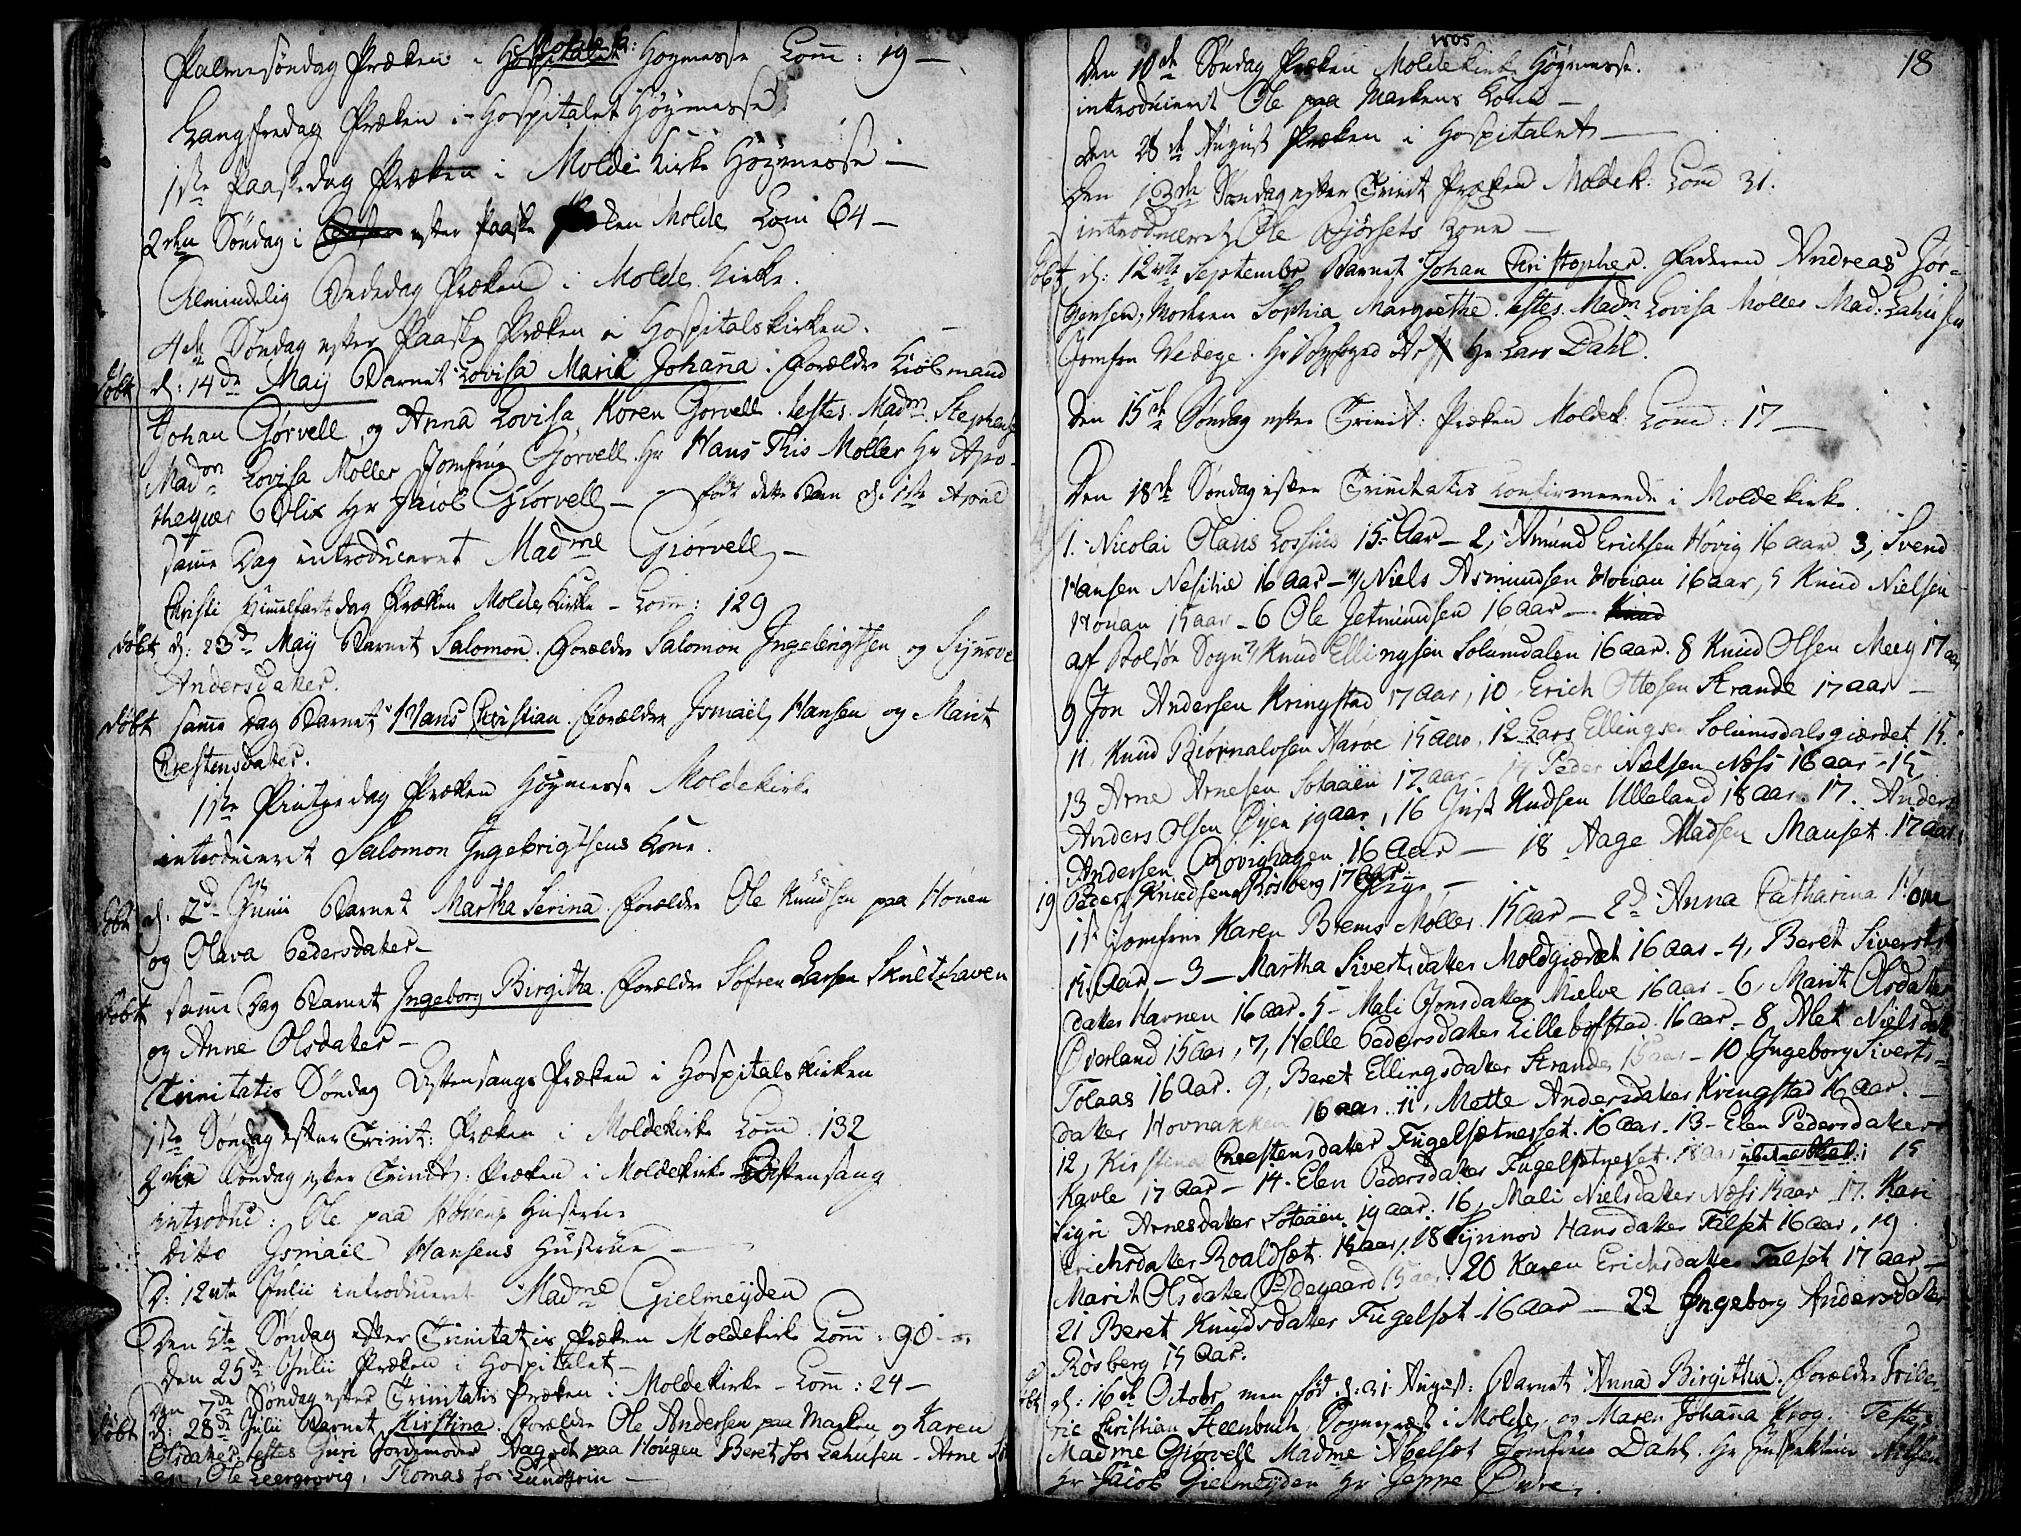 Palmesøndag Præken i Hospitalet Molde k: Høgmesse Com: 19 —
Langfredag Præken i Hospitalet Høgmesse
1ste Paaskedag Præken i Molde Kirke Høgmesse —
2den Søndag i efter Paaske den Molde Com 64 —
Almindelig Bededag Præken i Molde Kirke.
4de Søndag efter Paaske Præken i Hospitalskirken. —
døbt d: 14de Maÿ Barnet Lovisa Maria Johana. Forældre Kiøbmand
Johan Gørvell, og Anna Lovisa Koren Gørvell. testes. Madm Stephens
Madm Lovisa Møller Jomfrue Gørvell Hr Hans This Møller Hr Apo-
thequer Blix Hr Jacob Giørvell — født dette Barn d. 1ste April
samme Dag introduceret Madme Giørvell —
Christi Himmelfarts dag Præken Molde Kirke — Com: 129
døbt d: 23de Maÿ Barnet Salomon. Forældre Salomon Ingebrigtsen og Synove
Andersdater.
døbt samme Dag Barnet Hans Christian. Forældre Ismael Hansen og Marit
Chrestensdater.
1ste Pintzedag Præken Høgmesse Moldekirke
introduceret Salomon Ingebrigtsens Kone.
døbt d: 2de Junii Barnet Martha Serina. forældre Ole Knudsen paa Houen
og Olava Pedersdater —
døbt samme Dag Barnet Ingeborg Birgitha. forældre Søfren Larsen Skultzhaven
og Anne Olsdater —
Trinitatis Søndag Aftensangs Præken i Hospitalskirken
1ste Søndag efter Trinit: Præken i Moldekirke Com. 132
2den Søndag efter Trinit: Præken i Moldekirke Aftensang
introduc: Ole paa Houens Hustrue
Ditto Ismael Hansens Hustrue —
D: 12te Julii introduceret Madme Gielmeÿden
Den 5te Søndag efter Trinitatis Præken Moldekirke Com: 90 —
Den 25de Julii Præken i Hospitalet —
Den 7de Søndag efter Trinitatis Præken i Moldekirke — Com: 24 —
døbt d: 28de Julii Barnet Kirstina. forældre Ole Andersen paa Marken og Karen
Olsdater testes Guri Jordemoder Aagodt paa Hougen Beret hos Lahusen — Arne
Ole Leergrovig, Thomas hos Lundgrin —
1805
18
Den 10de Søndag Præken Moldekirke Høgmesse.
introduceret Ole paa Markens Kone —
Den 28de August Præken i Hospitalet —
Den 13de Søndag efter Trinit Præken Moldek: Com 31.
introduceret Ole Biørsets Kone —
døbt d: 12te Septembr Barnet Johan Christopher. Faderen Andreas Jør-
gensen, Moderen Sophia Margrethe. testes. Madm Lovisa Møller Mad: Lahusen
Jomfru Wedege. Hr Hr: Lars Dahl.
Den 15de Søndag efter Trinit: Præken Moldek: Com: 17 —
Den 18de Søndag efter Trinitatis confirmerede i Moldekirke.
1. Nicolai Olaus Lossius 15 Aar — 2, Amund Erichsen Høvig 16 aar 3, Svend
Hansen Nesihie 16 aar — 4, Niels Asmundsen Houan 16 aar, 5 Knud Nielsen
Houan 15 aar — 6 Ole Jetmundsen 16 aar — Knud
af Bolsøe Sogn 7, Knud Ellingsen Solumdalen 16 aar. 8 Knud Olsen Meeg 17 aar
9 Jon Andersen Kringstad 17 aar, 10 Erich Ottosen Strande 17 aar —
11, Knud Biørnalvsen Harøe 15 aar, 12 Lars Ellingsen Solumsdalsgiærdet 15.
13 Arne Arnesen Sotaaen 17 aar — 14 Peder Nielsen Næss 16 aar — 15,
Anders Olsen Øÿen 19 aar, 16 Gust Knudsen Ulleland 18 aar. 17. Anders
Andersen Røvighagen 16 Aar — 18 Aage Madsen Mauset 17 aar
19 Peder Knudsen Røsberg 17 aar.
Piger —
1st Jomfrue Karen Brems Møller 15 Aar — 2d Anna Catharina
15 Aar — 3 — Martha Sivertsdater Moldgiærdet 16 aar — 4, Beret Siverts
dater Havnen 16 aar. 5 — Mali Jonsdater Mielve 16 aar — 6, Marit Olsdater
Øverland 15 aar, 7, Helle Pedersdater Lillebostad 16 aar — 8 Alet Nielsdat
Tolaas 16 Aar. 9, Beret Ellingsdater Strande 15 aar — 10 Ingeborg Siverts-
dater Hovnakken 16 aar. 11, Mette Andersdater Kringstad 16 Aar. —
12, Kirstina Chrestensdater Fugelsetnesset. 16 aar. 13 — Elen Pedersdater
Kavle 17 Aar — 14. Elen Pedersdater Fugelsetnesset. 18 aar 15
Sigri Arnesdater Sotaaen 19 aar. 16, Mali Nielsdater Næss aar 17. Kari
Erichsdater Roaldset. 15 aar, 18 Synnov Hansdater Talset 16 aar, 19
Marit Olsdater Ødegaard 15 aar. 20 Karen Erichsdater Talset 17 aar —
21 Beret Knudsdatter Fugelset 16 aar — 22 Ingeborg Andersdater
Røsberg 15 Aar.
døbt d: 16de Octobr men fød d: 31 August: Barnet Anna Birgitha. forældre Fride-
ric Christian Steenbuch Sognepræst i Molde, og Maren Johana Krog. Testes
Madme Giørvell Madme Abelset Jomfrue Dahl Hr Inspekteur Nilsen
Hr Jacob Gielmeÿden Hr Jeppe Øvre.